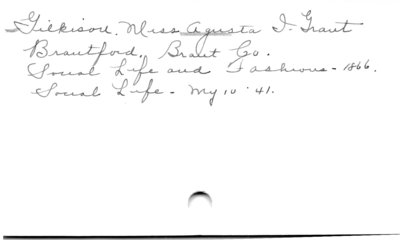 Gilkison, Miss Agusta I. Grant
Brantford, Brant Co.
Social Life and Fashions - 1866.
Social Life - My 10 '41.